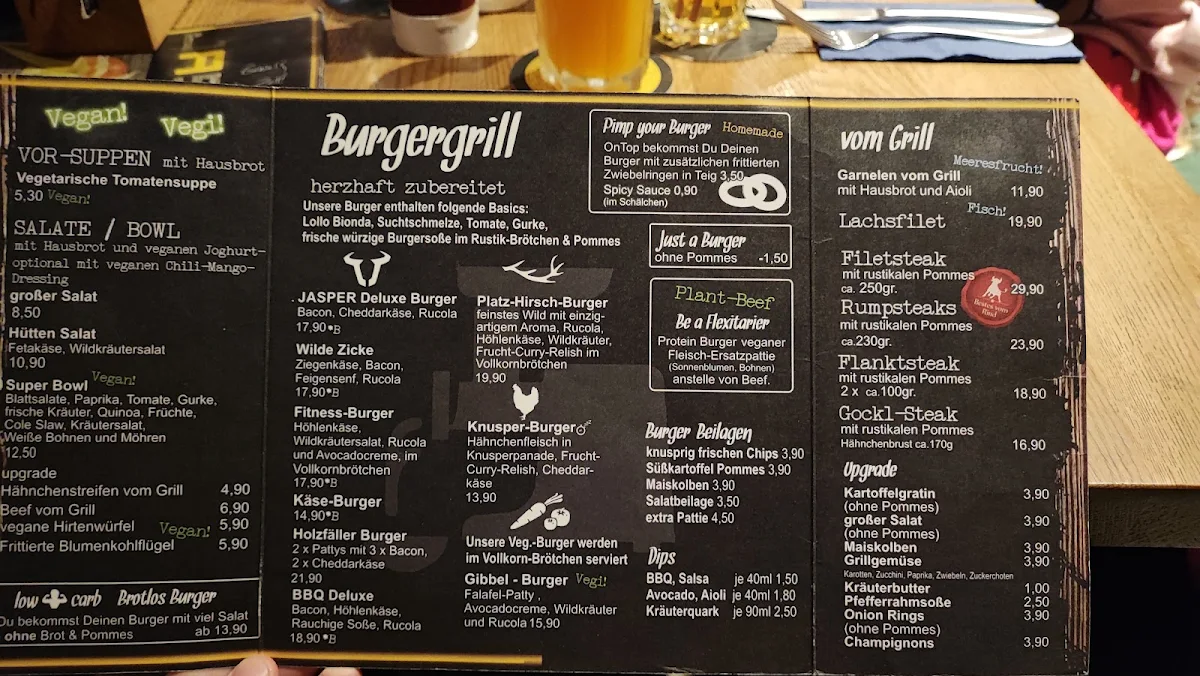 Vegan!
Vegi!
VOR-SUPPEN mit Hausbrot
Vegetarische Tomatensuppe
5,30 Vegan!
SALATE / BOWL
mit Hausbrot und veganen Joghurt-
optional mit veganen Chili-Mango-
Dressing
großer Salat
8,50
Hütten Salat
Fetakäse, Wildkräutersalat
10,90
Super Bowl Vegan!
Blattsalate, Paprika, Tomate, Gurke,
frische Kräuter, Quinoa, Früchte,
Cole Slaw, Kräutersalat,
Weiße Bohnen und Möhren
12,50
upgrade
Hähnchenstreifen vom Grill 4,90
Beef vom Grill 6,90
vegane Hirtenwürfel Vegan! 5,90
Frittierte Blumenkohlflügel 5,90
low carb Brotlos Burger
Du bekommst Deinen Burger mit viel Salat
ohne Brot & Pommes ab 13,90
Burgergrill
herzhaft zubereitet
Unsere Burger enthalten folgende Basics:
Lollo Bionda, Suchtschmelze, Tomate, Gurke,
frische würzige Burgersoße im Rustik-Brötchen & Pommes
JASPER Deluxe Burger
Bacon, Cheddarkäse, Rucola
17,90*B
Wilde Zicke
Ziegenkäse, Bacon,
Feigensenf, Rucola
17,90*B
Fitness-Burger
Höhlenkäse,
Wildkräutersalat, Rucola
und Avocadocreme, im
Vollkornbrötchen
17,90*B
Käse-Burger
14,90*B
Holzfäller Burger
2 x Pattys mit 3 x Bacon,
2 x Cheddarkäse
21,90
BBQ Deluxe
Bacon, Höhlenkäse,
Rauchige Soße, Rucola
18,90*B
Platz-Hirsch-Burger
feinstes Wild mit einzig-
artigem Aroma, Rucola,
Höhlenkäse, Wildkräuter,
Frucht-Curry-Relish im
Vollkornbrötchen
19,90
Knusper-Burger
Hähnchenfleisch in
Knusperpanade, Frucht-
Curry-Relish, Cheddar-
käse
13,90
Unsere Veg.-Burger werden
im Vollkorn-Brötchen serviert
Gibbel - Burger Vegi!
Falafel-Patty ,
Avocadocreme, Wildkräuter
und Rucola 15,90
Pimp your Burger Homemade
OnTop bekommst Du Deinen
Burger mit zusätzlichen frittierten
Zwiebelringen in Teig 3,50
Spicy Sauce 0,90
(im Schälchen)
Just a Burger
ohne Pommes -1,50
Plant-Beef
Be a Flexitarier
Protein Burger veganer
Fleisch-Ersatzpattie
(Sonnenblumen, Bohnen)
anstelle von Beef.
Burger Beilagen
knusprig frischen Chips 3,90
Süßkartoffel Pommes 3,90
Maiskolben 3,90
Salatbeilage 3,50
extra Pattie 4,50
Dips
BBQ, Salsa je 40ml 1,50
Avocado, Aioli je 40ml 1,80
Kräuterquark je 90ml 2,50
vom Grill
Meeresfrucht!
Garnelen vom Grill
mit Hausbrot und Aioli 11,90
Fisch!
Lachsfilet 19,90
Filetsteak
mit rustikalen Pommes
ca. 250gr. 29,90
Bestes vom
Rind
Rumpsteaks
mit rustikalen Pommes
ca.230gr. 23,90
Flanktsteak
mit rustikalen Pommes
2 x ca.100gr. 18,90
Gockl-Steak
mit rustikalen Pommes
Hähnchenbrust ca.170g 16,90
Upgrade
Kartoffelgratin 3,90
(ohne Pommes)
großer Salat 3,90
(ohne Pommes)
Maiskolben 3,90
Grillgemüse 3,90
Karotten, Zucchini, Paprika, Zwiebeln, Zuckerchoten
Kräuterbutter 1,00
Pfefferrahmsoße 2,50
Onion Rings 3,90
(ohne Pommes)
Champignons 3,90